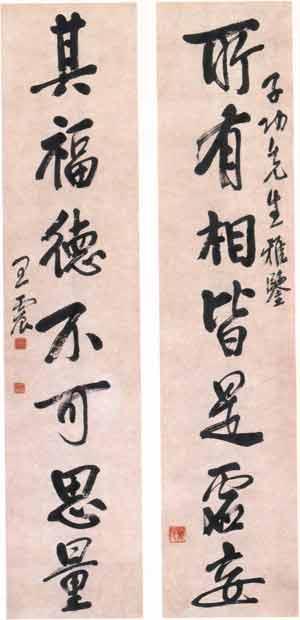 所有相皆是虚妄
子功先生雅鑒
其福德不可思量
王震